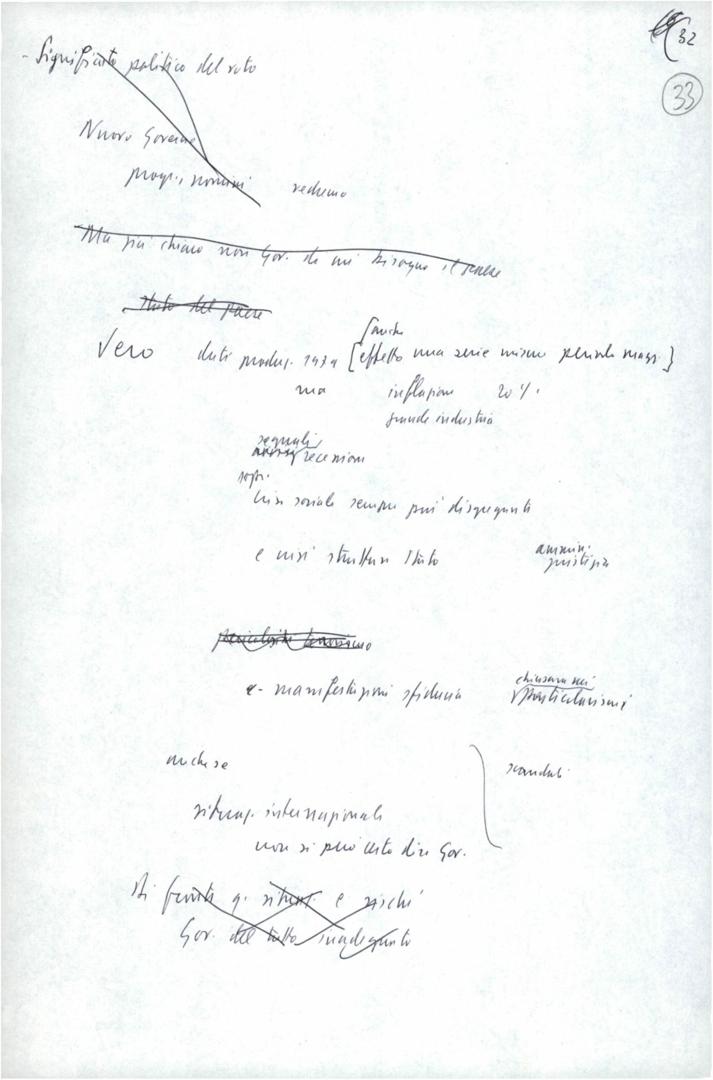 32
33
- Significato politico del voto
Nuovo Governo
progr., nomini vedremo
Ma più chiaro non Gov. di cui bisogno il paese
Stato del paese
Vero dati produz. 1979 [effetto una serie misure
anche
ma inflazione 20%.
grande industria
segnali
recessione
sopr.
crisi sociale sempre più disgreganti
e crisi strutture Stato ammin.
giustizia
pericolosità terrorismo
e - manifestazioni sfiducia chiusura nei
particolarismi
anche se scandali
situaz. internazionale
non si può certo dire Gov.
di fronte q. situaz. e rischi
Gov. del tutto inadeguato